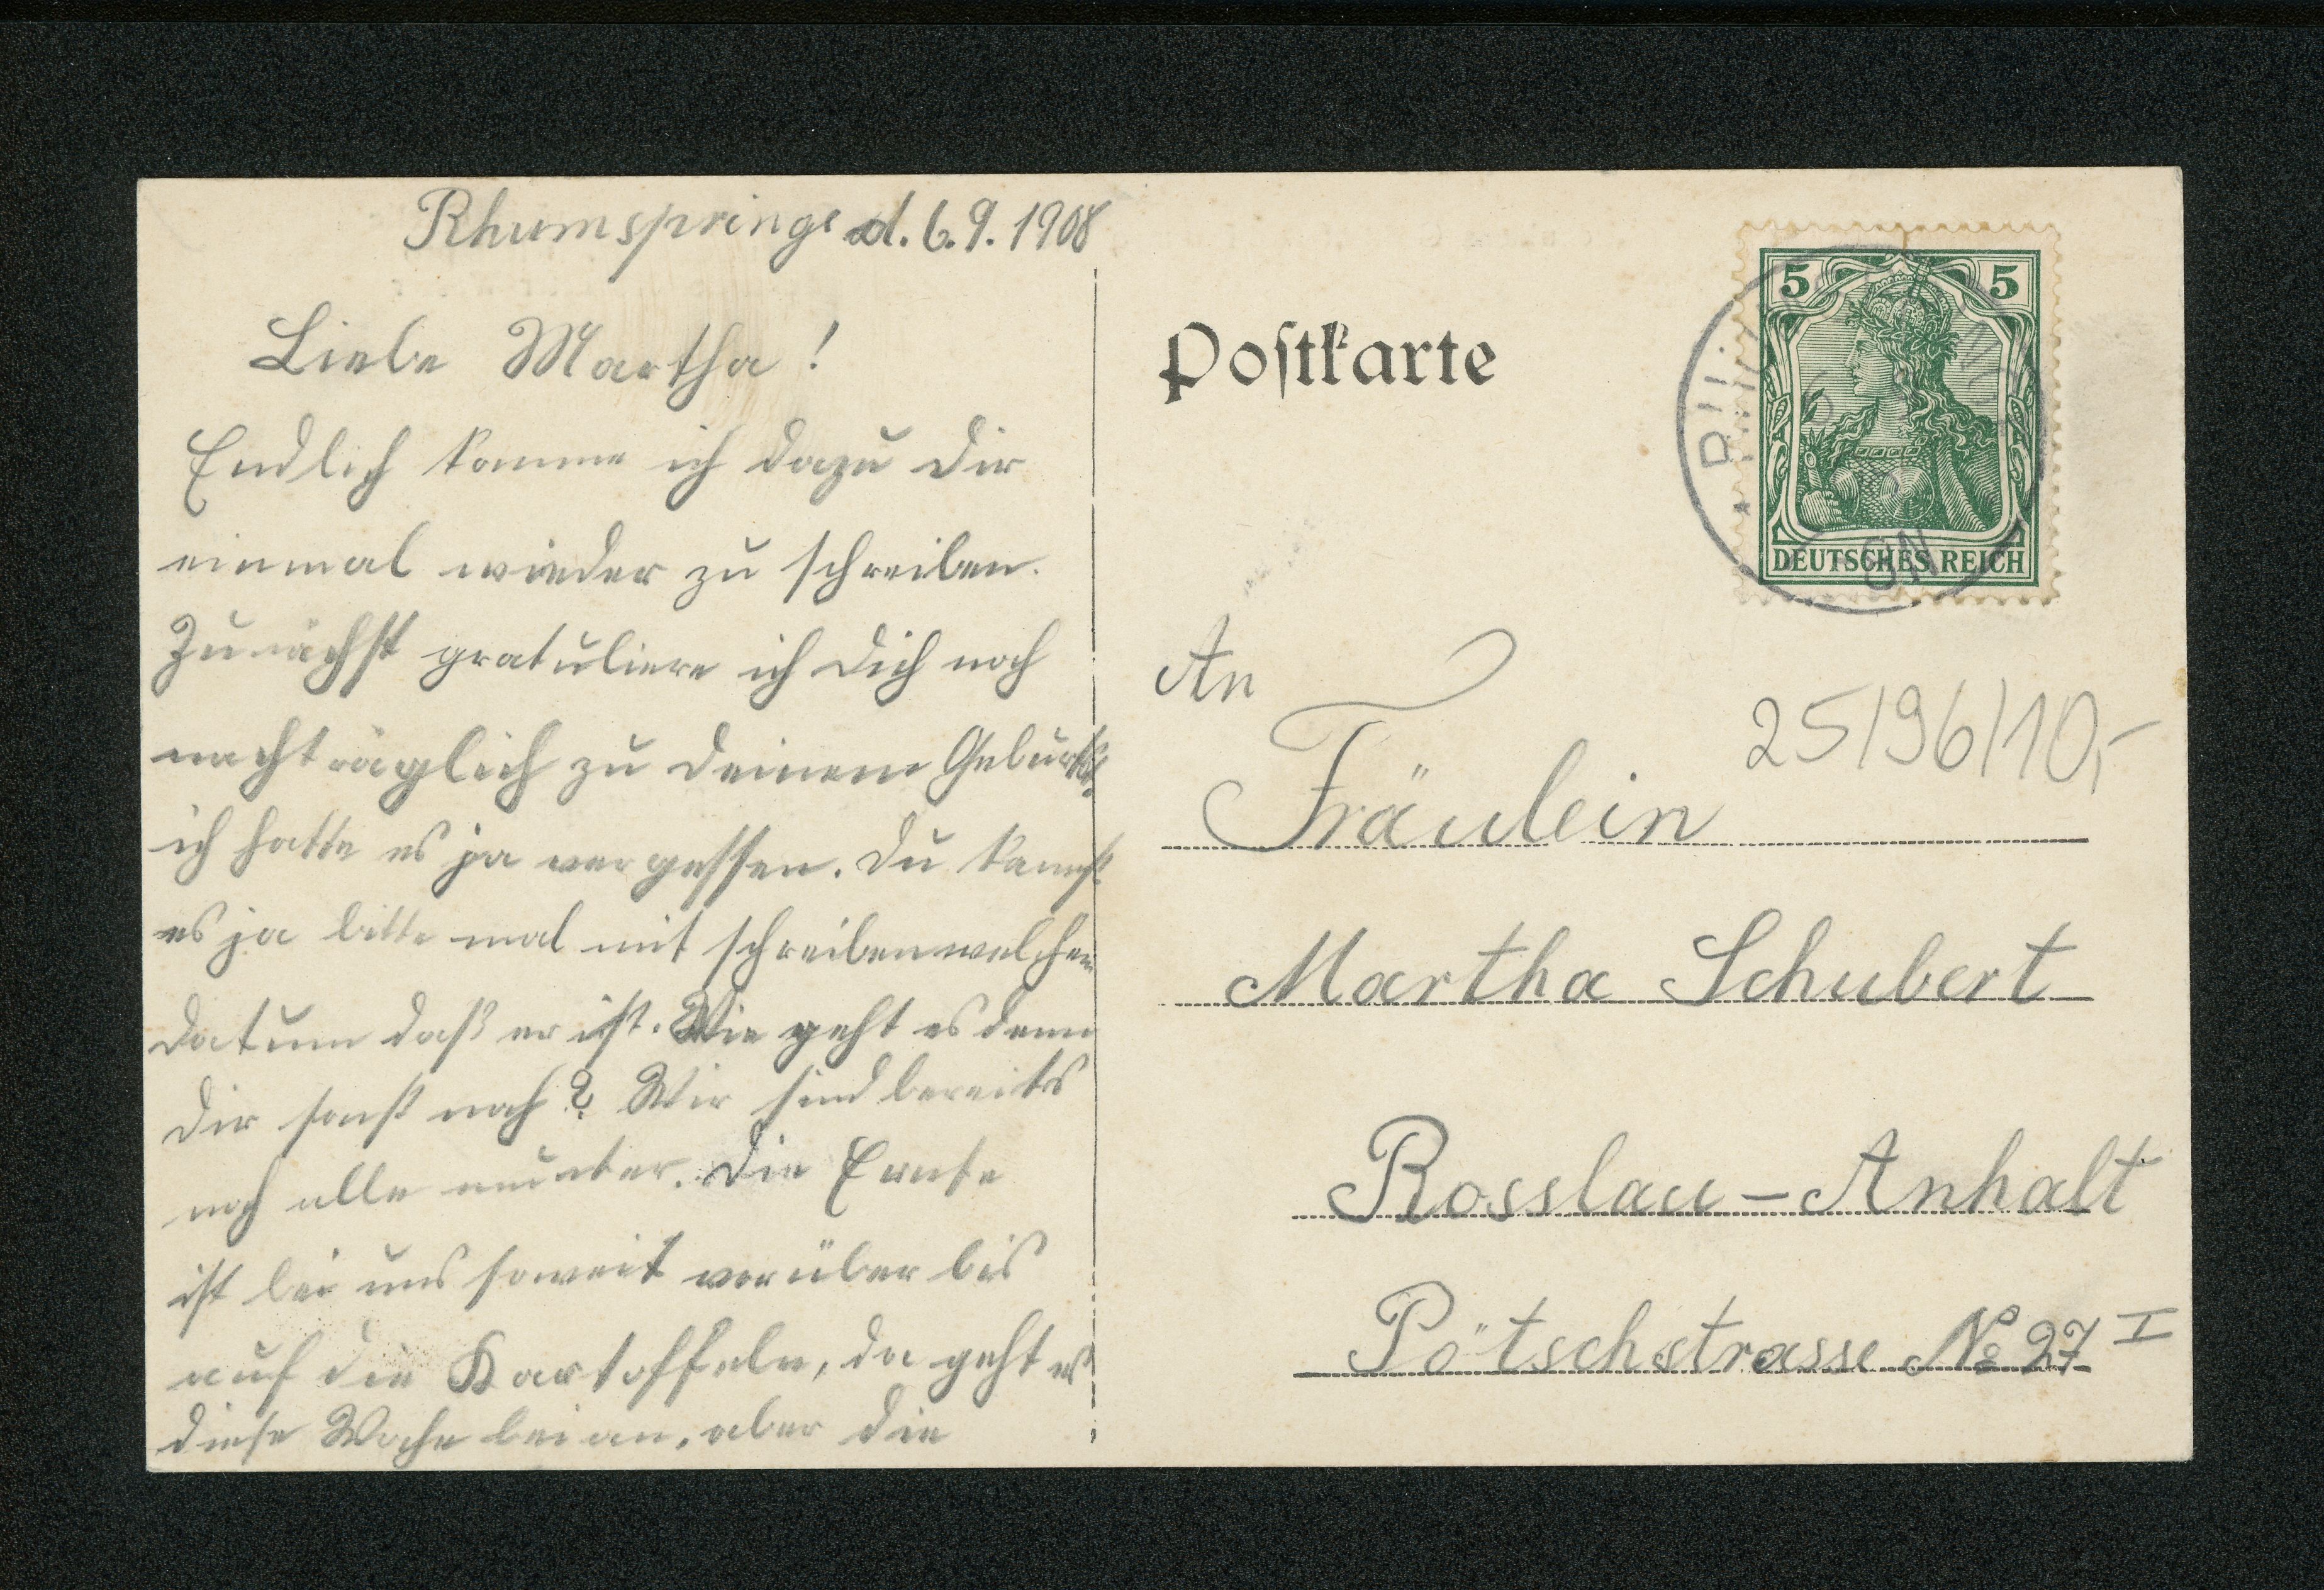 Rhumspringe d. 6.9.1908
Liebe Martha!
Endlich komme ich dazu Dir
einmal wieder zu schreiben.
Zunächst gratuliere ich Dich noch
nachträglich zu Deinem Geburtst.
ich hatte es ja vergessen. Du kannst
es ja bitte mal mit schreiben welchen
Datum daß er ist. Wie geht es denn
Dir sonst noch? Wir sind bereits
noch alle munter. Die Ernte
ist bei uns soweit vorüber bis
auf die Kartoffeln, da geht es
diese Woche bei an, aber die
Postkarte
5 5
DEUTSCHES REICH
An
Fräulein
25/96/10,-
Martha Schubert
Rosslau-Anhalt
Pötschstrasse No 27 I